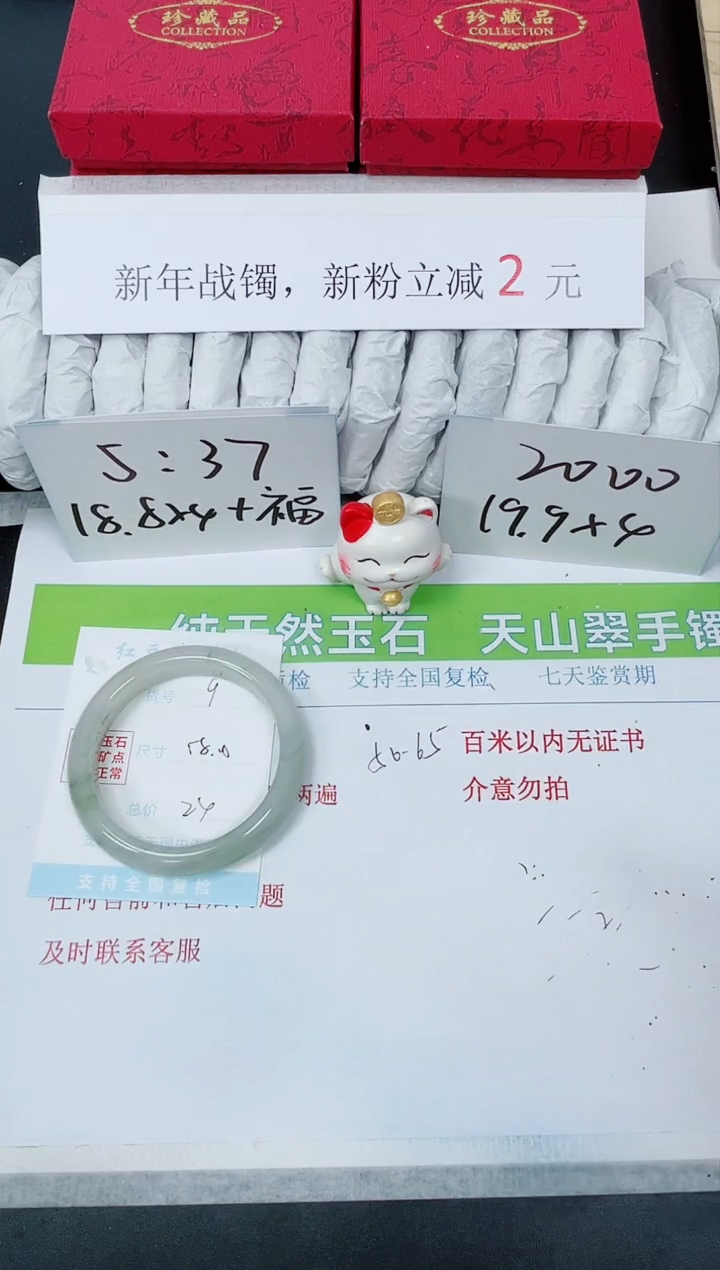 珍藏品
COLLECTION
珍藏品
COLLECTION
新年战镯，新粉立减2元
5:37
18.8x4+福
2000
19.9x4
纯天然玉石 天山翠手镯
检 支持全国复检、 七天鉴赏期
货号 9
玉石
矿点
正常
尺寸 58.0
总价 24
支持全国复检
50-65
百米以内无证书
介意勿拍
两遍
题
及时联系客服